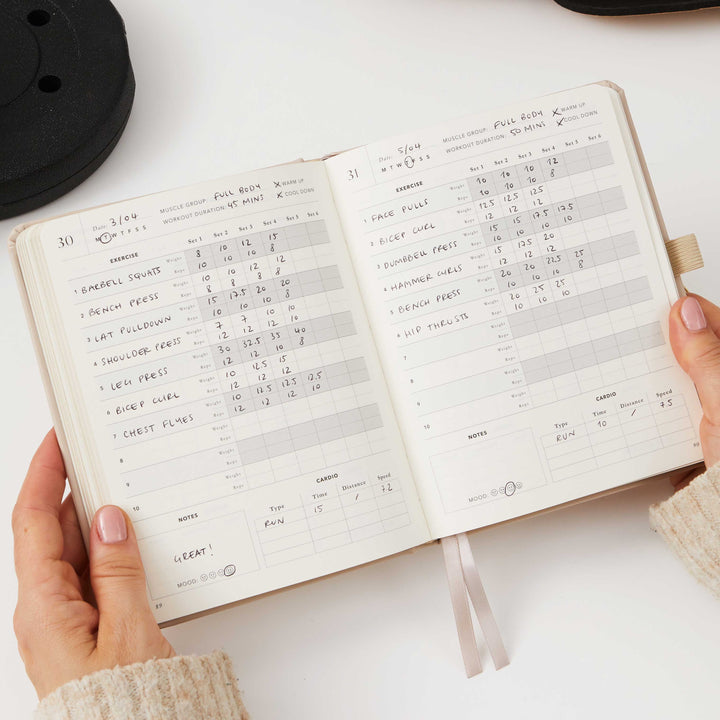 30
Date: 3/04
M T W T F S S
MUSCLE GROUP: FULL BODY
WORKOUT DURATION: 45 MINS
X WARM UP
X COOL DOWN
EXERCISE Set 1 Set 2 Set 3 Set 4 Set 5 Set 6
1 BARBELL SQUATS Weight 8 10 12 15
Reps 10 10 10 8
2 BENCH PRESS Weight 10 10 12 12
Reps 8 8 8 8
3 LAT PULLDOWN Weight 15 17.5 20 20
Reps 10 10 10 8
4 SHOULDER PRESS Weight 7 7 10 10
Reps 12 12 12 10
5 LEG PRESS Weight 30 32.5 35 40
Reps 12 12 10 8
6 BICEP CURL Weight 10 12.5 15
Reps 12 12 12
7 CHEST FLYES Weight 10 12.5 12.5 12.5
Reps 12 12 12 10
8 Weight
Reps
9 Weight
Reps
10 Weight
Reps
NOTES
GREAT!
MOOD:
CARDIO
Type Time Distance Speed
RUN 15 / 7.2
89
31
Date: 5/04
M T W T F S S
MUSCLE GROUP: FULL BODY
WORKOUT DURATION: 50 MINS
X WARM UP
X COOL DOWN
EXERCISE Set 1 Set 2 Set 3 Set 4 Set 5 Set 6
1 FACE PULLS Weight 10 10 10 12
Reps 10 10 10 8
2 BICEP CURL Weight 12.5 12.5 12.5
Reps 12 12 10
3 DUMBBELL PRESS Weight 15 15 17.5 17.5
Reps 10 10 10 10
4 HAMMER CURLS Weight 15 17.5 20
Reps 12 12 12
5 BENCH PRESS Weight 20 20 22.5 25
Reps 10 10 10 8
6 HIP THRUSTS Weight 20 25 25
Reps 10 10 10
7 Weight
Reps
8 Weight
Reps
9 Weight
Reps
10 Weight
Reps
NOTES
MOOD:
CARDIO
Type Time Distance Speed
RUN 10 / 7.5
90